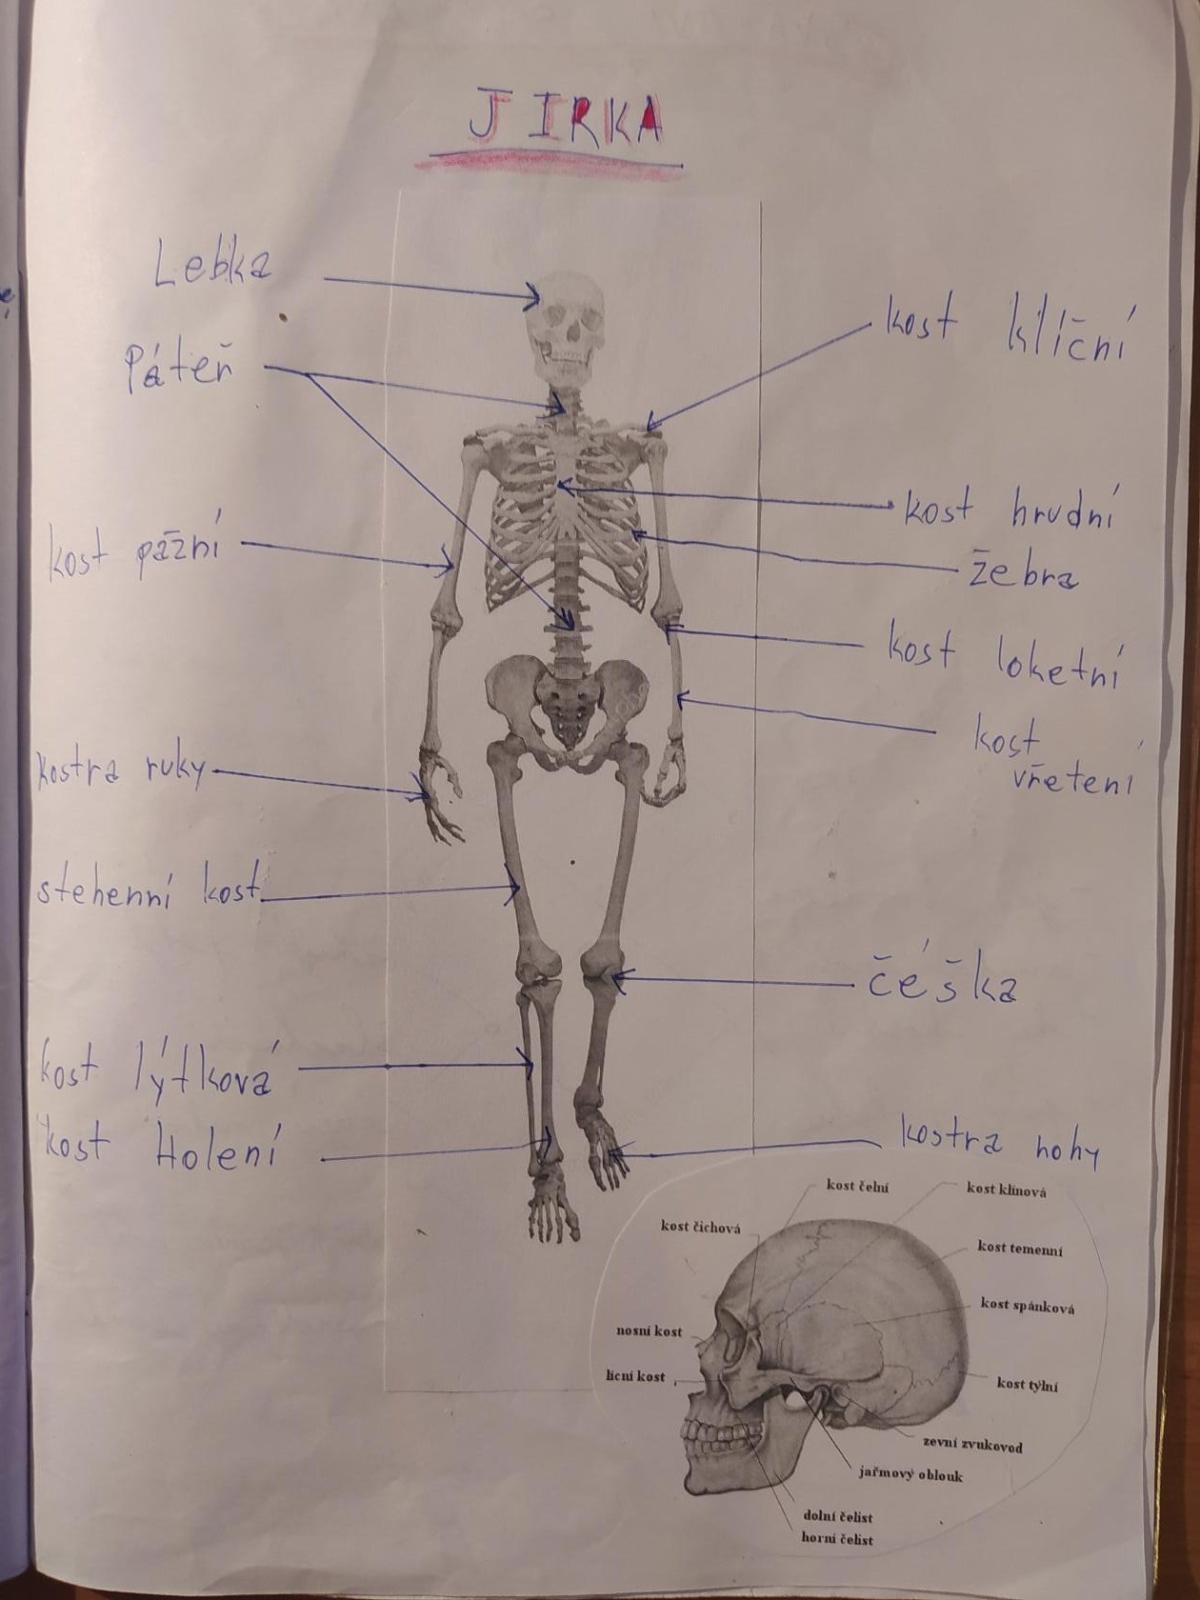 JIRKA
Lebka
Páteř
kost pažní
kostra ruky
stehenní kost
kost lýtková
kost Holení
kost klíční
kost hrudní
žebra
kost loketní
kost
vřetení
čéška
kostra nohy
kost čelní
kost klínová
kost čichová
kost temenní
kost spánková
nosní kost
lícní kost
kost týlní
zevní zvukovod
jařmový oblouk
dolní čelist
horní čelist